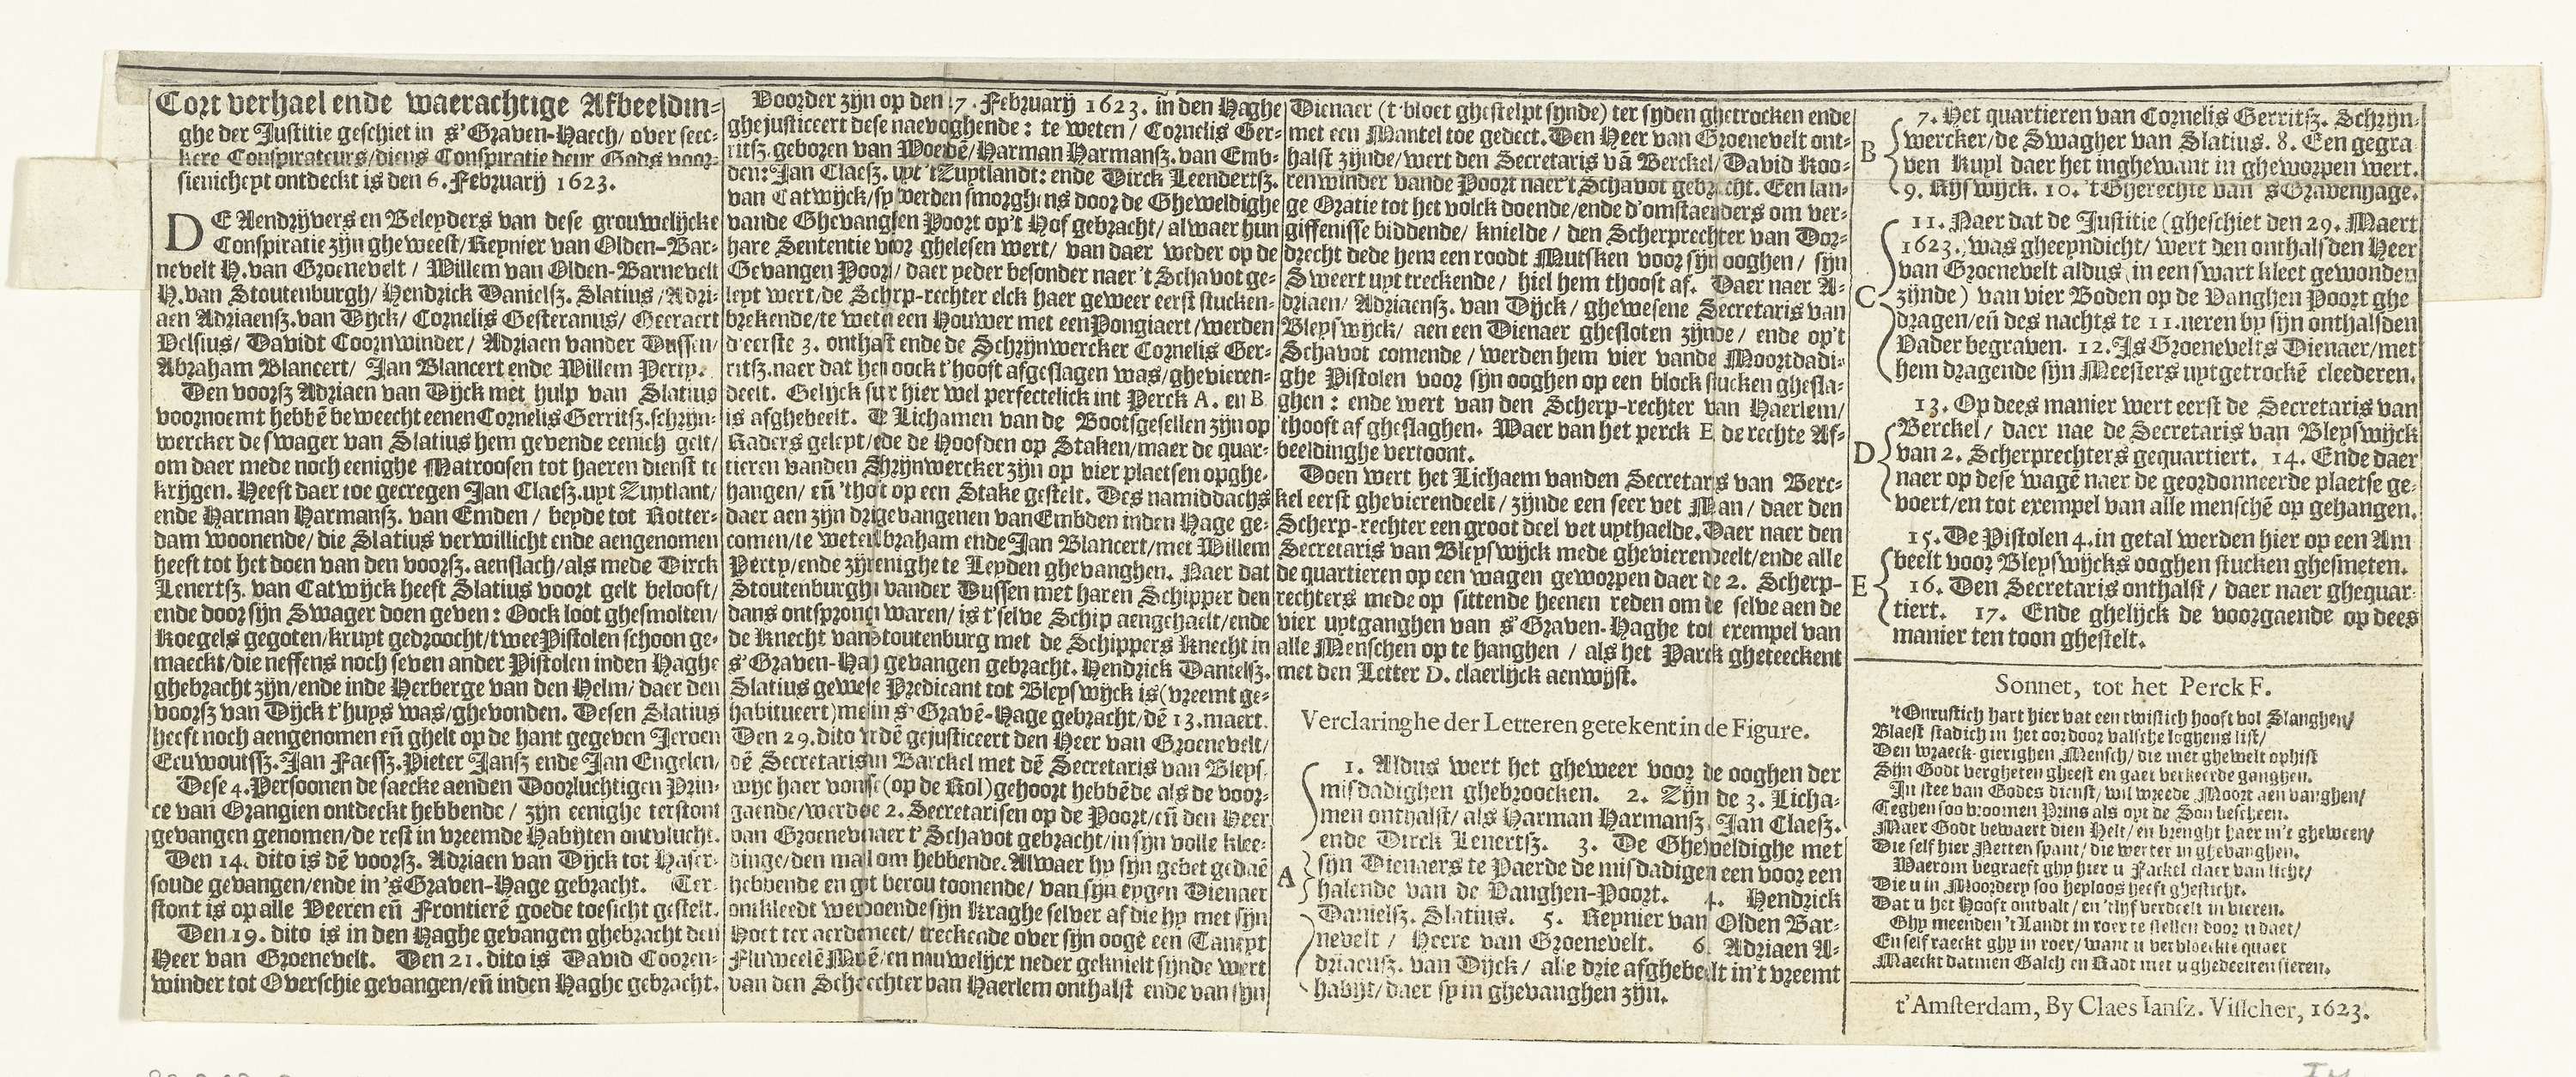 Cort verhael ende waerachtige Afbeeldin-
ghe der Justitie geschiet in s'Graven-Haech/ over seec-
kere Conspirateurs/diens Conspiratie deur Gods voor-
sienicheyt ontdeckt is den 6. Februarij 1623.
DE Aendrijvers en Beleyders van dese grouwelijcke
Conspiratie zijn gheweest/Reynier van Olden-Bar-
nevelt H. van Groenevelt / Willem van Olden-Barnevelt
H. van Stoutenburgh/ Hendrick Danielsz. Slatius /Adri-
aen Adriaensz. van Dyck/ Cornelis Gesteranus/ Geeraert
Velsius/ Davidt Coornwinder/ Adriaen vander Dussen/
Abraham Blancert/ Jan Blancert ende Willem Perty.
Den voorsz Adriaen van Dijck met hulp van Slatius
voornoemt hebbē beweecht eenen Cornelis Gerritsz. schrijn-
wercker de swager van Slatius hem gevende eenich gelt/
om daer mede noch eenighe Matroosen tot haeren dienst te
krijgen. Heeft daer toe gecregen Jan Claesz. uyt Zuytlant/
ende Harman Harmansz. van Emden / beyde tot Rotter-
dam woonende/ die Slatius verwillicht ende aengenomen
heeft tot het doen van den voorsz. aenslach/ als mede Dirck
Lenertsz. van Catwijck heeft Slatius voort gelt belooft/
ende door sijn Swager doen geven: Oock loot ghesmolten/
Koegels gegoten/kruyt gedroocht/twee Pistolen schoon ge-
maeckt/die neffens noch seven ander Pistolen inden Haghe
ghebracht zijn/ende inde Herberge van den Helm/ daer den
voorsz van Dijck t'huys was/ghevonden. Desen Slatius
heeft noch aengenomen eñ ghelt op de hant gegeven Jeroen
Eeuwoutsz. Jan Faessz. Pieter Jansz ende Jan Engelen/
Dese 4. Persoonen de saecke aenden Doorluchtigen Prin-
ce van Orangien ontdeckt hebbende / zijn eenighe terstont
gevangen genomen/de rest in vreemde Habijten ontvlucht.
Den 14. dito is dē voorsz. Adriaen van Dijck tot Haser-
soude gevangen/ende in 'sGraven-Hage gebracht. Ter-
stont is op alle Veeren eñ Frontierē goede toesicht gestelt.
Den 19. dito is in den Haghe gevangen ghebracht den
Heer van Groenevelt. Den 21. dito is David Cooren-
winder tot Overschie gevangen/eñ inden Haghe gebracht.
Voorder zijn op den 7. Februarij 1623. in den Haghe
ghejusticeert dese naevolghende: te weten / Cornelis Ger-
ritsz. geboren van Woerdē/Harman Harmansz. van Emb-
den: Jan Claesz. uyt 'tZuytlandt: ende Dirck Leendertsz.
van Catwijck/sy werden smorghens door de Gheweldighe
vande Ghevanghen Poort op't Hof gebracht/ alwaer hun
hare Sententie voor ghelesen wert/ van daer weder op de
Gevangen Poort/ daer yeder besonder naer 't Schavot ge-
leyt wert/de Scherp-rechter elck haer geweer eerst stucken-
brekende/te weten een Houwer met een Pongiaert/werden
d'eerste 3. onthalst ende de Schrijnwercker Cornelis Ger-
ritsz. naer dat hem oock t'hooft afgeslagen was/ghevieren-
deelt. Gelijck sulx hier wel perfectelick int Perck A. en B
is afghebeelt. De Lichamen van de Bootsgesellen zijn op
Raders geleyt/ende de Hoofden op Staken/maer de quar-
tieren vanden Schrijnwercker zijn op vier plaetsen opghe-
hangen/ eñ 'thooft op een Stake gestelt. Des namiddachs
daer aen zijn drie gevangenen van Embden inden Hage ge-
comen/te weten Abraham ende Jan Blancert/met Willem
Perty/ende zijn eenighe te Leyden ghevanghen. Naer dat
Stoutenburgh vander Dussen met haren Schipper den
dans ontsprongen waren/ is t'selve Schip aengehaelt/ende
de Knecht van Stoutenburg met de Schippers Knecht in
s'Graven-Hage gevangen gebracht. Hendrick Danielsz.
Slatius gewese Predicant tot Bleyswijck is (vreemt ge-
habitueert) mede in s'Gravē-Hage gebracht/dē 13. maert.
Den 29. dito werdē gejusticeert den Heer van Groenevelt/
dē Secretaris van Barckel met dē Secretaris van Bleys-
wijc haer vonnisse (op de Rol) gehoort hebbēde als de voor-
gaende/werden de 2. Secretarisen op de Poort/eñ den Heer
van Groenevelt naer t'Schavot gebracht/in sijn volle klee-
dinge/den mantel om hebbende. Alwaer hy sijn gebet gedaē
hebbende en groot berou toonende/ van sijn eygen Dienaer
ontkleedt werdt doende sijn Kraghe selver af die hy met sijn
Hoet ter aerden smeet/ treckende over sijn oogē een Taneyt
Fluweelē Mutsē/en nauwelijcx neder geknielt sijnde wert
van den Scherprechter van Haerlem onthalst ende van sijn
Dienaer (t'bloet ghestelpt sijnde) ter syden ghetrocken ende
met een Mantel toe gedect. Den Heer van Groenevelt ont-
halst zijnde/wert den Secretaris vā Berckel/David Koo-
renwinder vande Poort naer't Schavot gebracht. Een lan-
ge Oratie tot het volck doende/ende d'omstaenders om ver-
giffenisse biddende/ knielde / den Scherprechter van Dor-
drecht dede hem een roodt Mutsken voor sijn ooghen / sijn
Sweert uyt treckende/ hiel hem thooft af. Daer naer A-
driaen/ Adriaensz. van Dijck/ ghewesene Secretaris van
Bleyswijck/ aen een Dienaer ghesloten zijnde/ ende op't
Schavot comende/ werden hem vier vande Moortdadi-
ghe Pistolen voor sijn ooghen op een block stucken ghesla-
ghen: ende wert van den Scherp-rechter van Haerlem/
'thooft af gheslaghen. Waer van het perck E de rechte Af-
beeldinghe vertoont.
Doen wert het Lichaem vanden Secretaris van Berc-
kel eerst ghevierendeelt/ zijnde een seer vet Man/ daer den
Scherp-rechter een groot deel vet uythaelde. Daer naer den
Secretaris van Bleyswijck mede ghevierendeelt/ende alle
de quartieren op een wagen geworpen daer de 2. Scherp-
rechters mede op sittende heenen reden om de selve aen de
vier uytganghen van s'Graven-Haghe tot exempel van
alle Menschen op te hanghen / als het Parck gheteeckent
met den Letter D. claerlijck aenwijst.
Verclaringhe der Letteren getekent in de Figure.
1. Aldus wert het gheweer voor de ooghen der
misdadighen ghebroocken. 2. Zijn de 3. Licha-
men onthalst/ als Harman Harmansz. Jan Claesz.
ende Dirck Lenertsz. 3. De Gheweldighe met
A sijn Dienaers te Paerde de misdadigen een voor een
halende van de Vanghen-Poort. 4. Hendrick
Danielsz. Slatius. 5. Reynier van Olden Bar-
nevelt / Heere van Groenevelt. 6. Adriaen A-
driaensz. van Dijck/ alle drie afghebeelt in't vreemt
habijt/daer sy in ghevanghen zijn.
7. Het quartieren van Cornelis Gerritsz. Schrijn-
B wercker/de Swagher van Slatius. 8. Een gegra-
ven Kuyl daer het inghewant in gheworpen wert.
9. Rijswijck. 10. 't Gherechte van s'Gravenhage.
11. Naer dat de Justitie (gheschiet den 29. Maert
1623.) was gheeyndicht/ wert den onthalsden Heer
van Groenevelt aldus (in een swart kleet gewonden
C zijnde) van vier Boden op de Vanghen Poort ghe
dragen/eñ des nachts te 11. ueren by sijn onthalsden
Vader begraven. 12. Is Groenevelts Dienaer/met
hem dragende sijn Meesters uytgetrockē cleederen.
13. Op dees manier wert eerst de Secretaris van
Berckel/ daer nae de Secretaris van Bleyswijck
D van 2. Scherprechters gequartiert. 14. Ende daer
naer op dese wagē naer de geordonneerde plaetse ge-
voert/en tot exempel van alle menschē op gehangen.
15. De Pistolen 4. in getal werden hier op een Am
beelt voor Bleyswijcks ooghen stucken ghesmeten.
E 16. Den Secretaris onthalst/ daer naer ghequar-
tiert. 17. Ende ghelijck de voorgaende op dees
manier ten toon ghestelt.
Sonnet, tot het Perck F.
't Onrustich hart hier vat een twistich hooft vol Slanghen/
Blaest stadich in het oor door valsche loghens list/
Den wraeck-gierighen Mensch/ die met ghewelt ophist
Sijn Godt vergheten gheest en gaet verkeerde ganghen.
In stee van Godes dienst/ wil wreede Moort aen vanghen/
Teghen soo vroomen Prins als oyt de Son bescheen.
Maer Godt bewaert dien Helt/ en brenght haer in't gheween/
Die self hier Netten spant/ die wert er in ghevanghen.
Waerom begraeft ghy hier u Fackel claer van licht/
Die u in Moordery soo heyloos heeft ghesticht.
Dat u het Hooft ontvalt/ en 'tlijf verdeelt in vieren.
Ghy meenden 't Landt in roer te stellen door u daet/
En self raeckt ghy in roer/ want u vervloeckte quaet
Maeckt datmen Galch en Radt met u ghebeenten sieren.
t'Amsterdam, By Claes Iansz. Visscher, 1623.